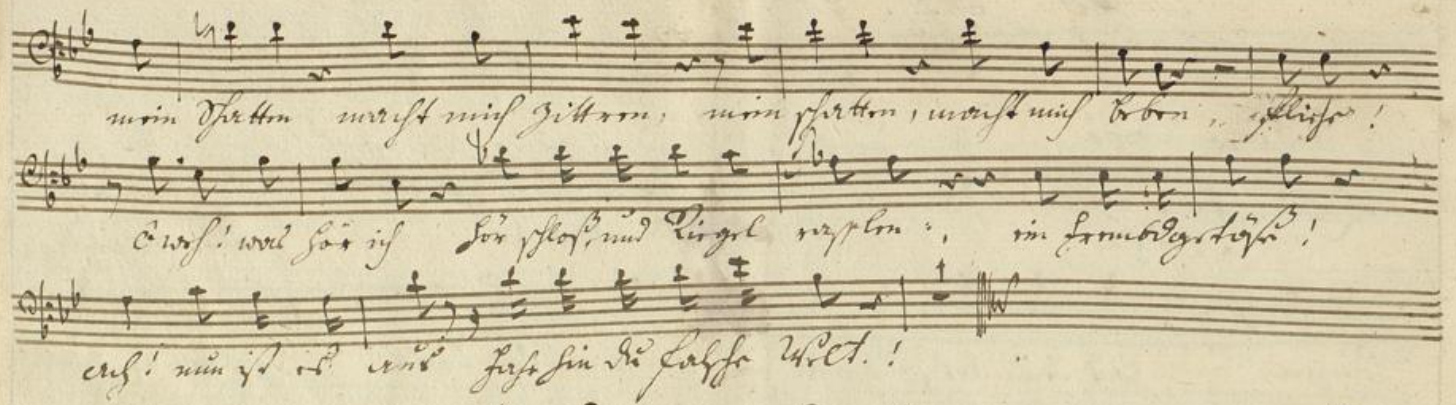 mein Schatten macht mich zittren, mein schatten, macht mich beben,
O weh! was hör ich hör schloß, und Riegel rasslen, ein frembd getöse!
ach! nun ist es aus fahr hin du falsche Welt.!